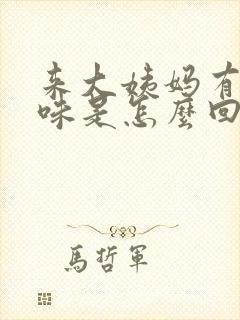 来大姨妈有
味是怎麼回
馬哲軍